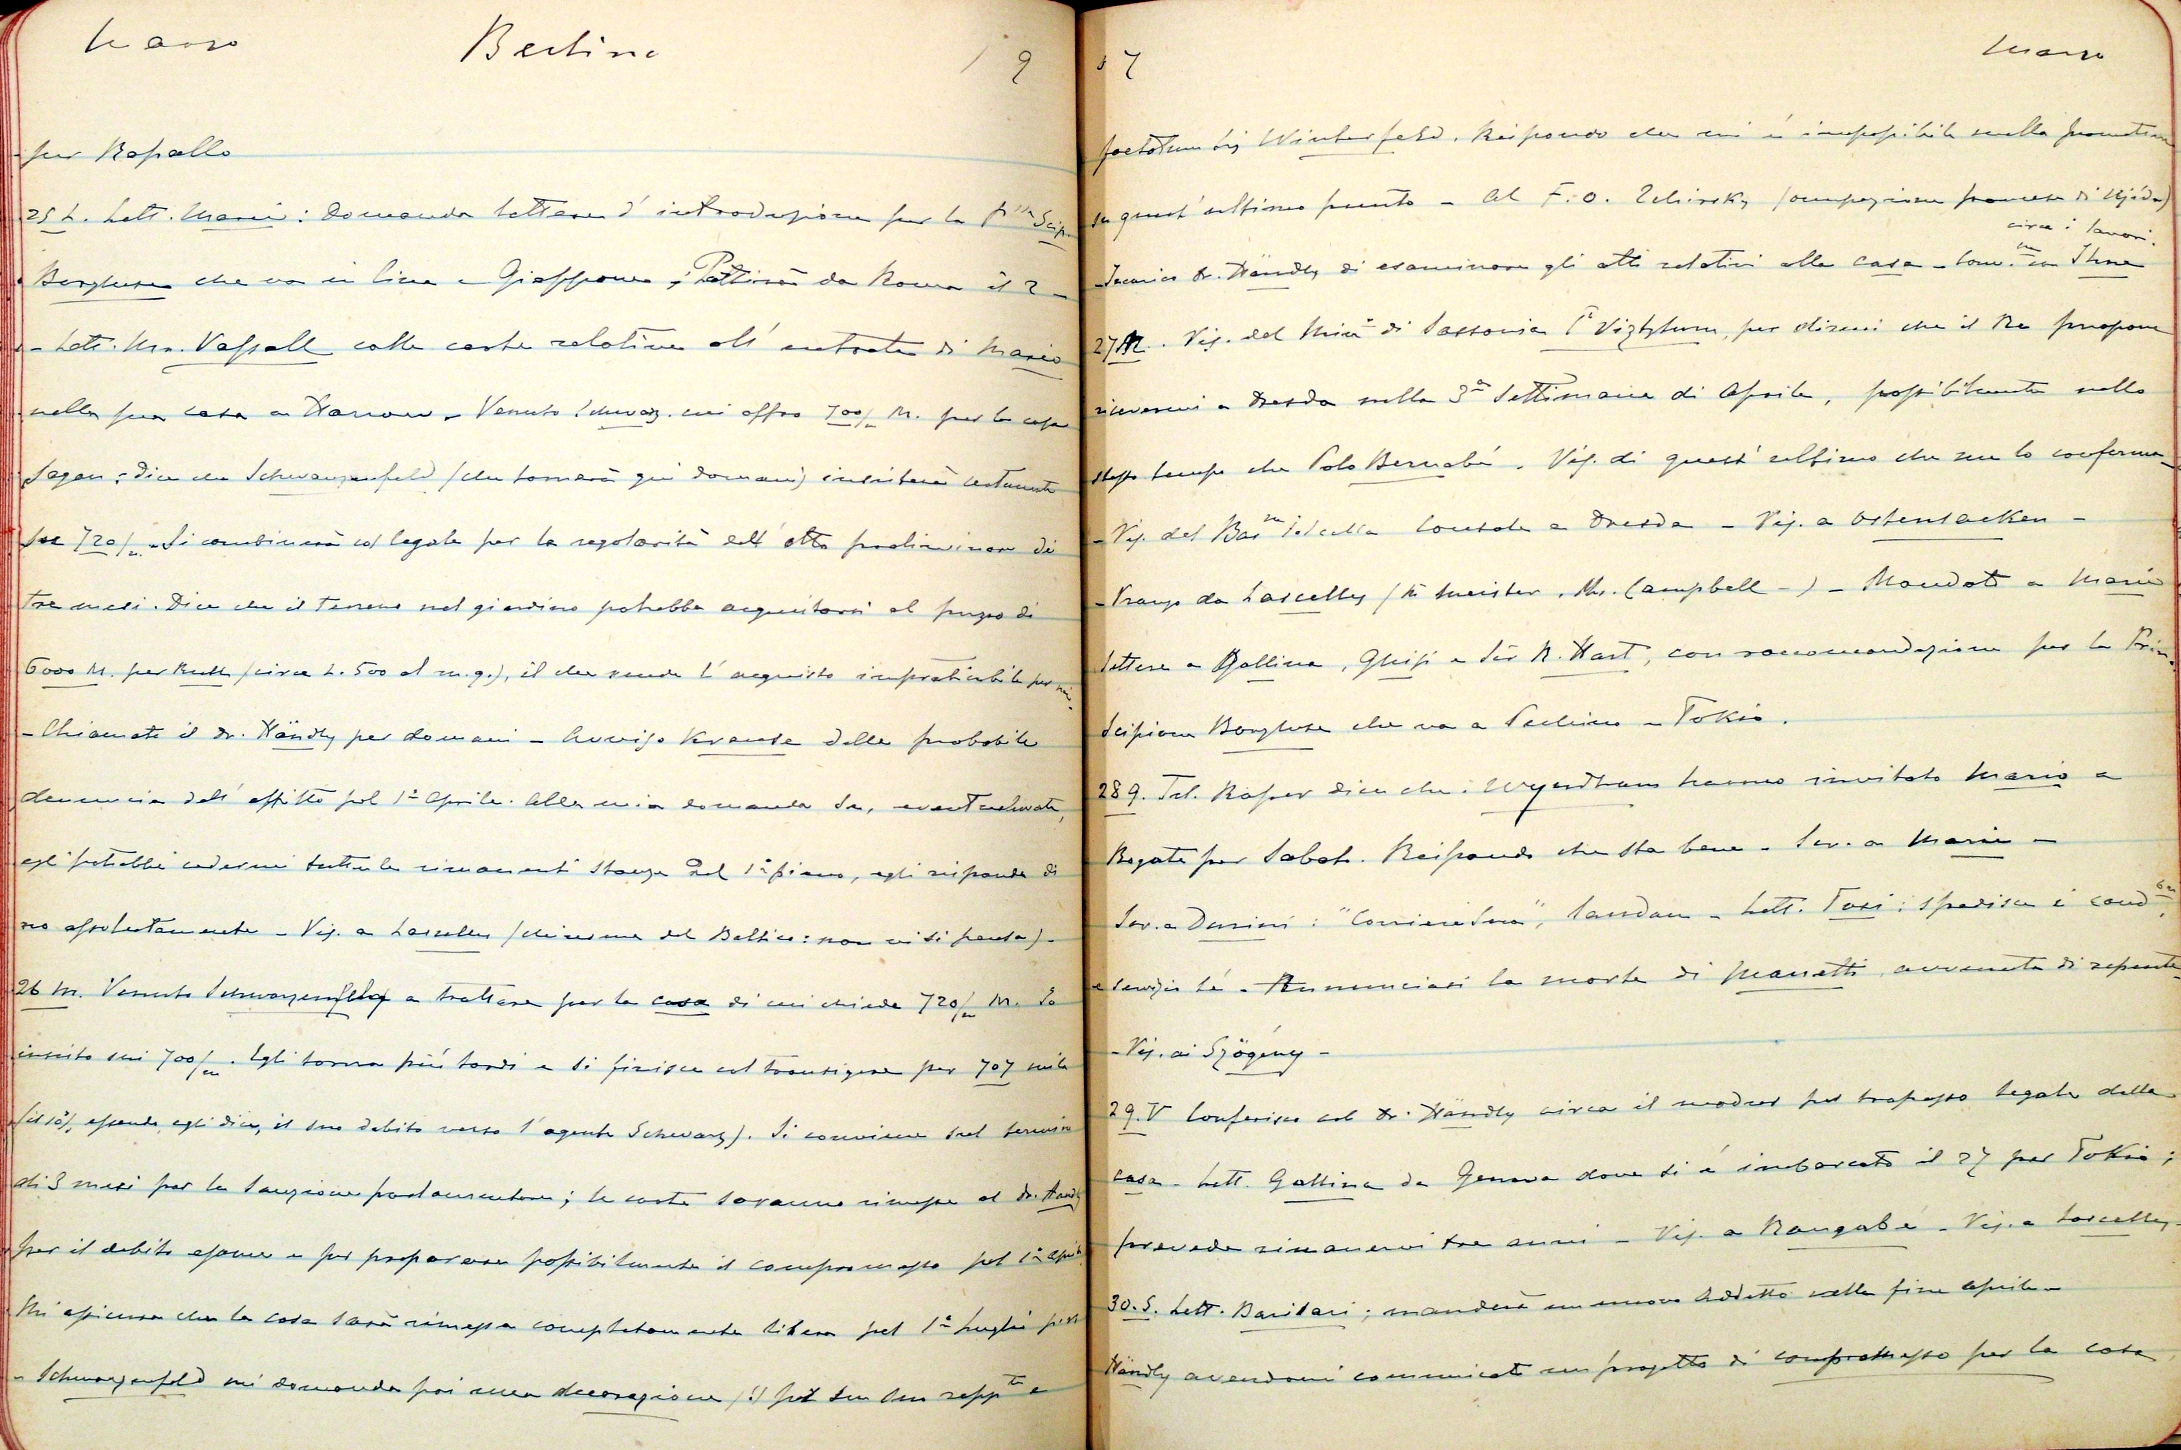 Marzo Berlino 19
per Rapallo
25 L. Lett. Maria: domanda lettere d'introduzione per la Pssa Scip.
Borghese che va in Cina e Giappone; Partirà da Roma il 2 -
- Lett. Mrs. Vassall colle carte relative all'entrata di Mario
nella sua casa a Harrow. Venuto Schwarz. cui offro 700/m M. per la casa
Sagan; dice che Schwarzenfeld (che tornerà qui domani) insisterà certamente
su 720/m. Si combinerà col legale per la regolarità dell'atto preliminare di
tre mesi. Dice che il terreno nel giardino potrebbe acquistarsi al prezzo di
6000 M. per Ruth (circa L. 500 al m.q.), il che rende l'acquisto impraticabile per noi.
- Chiamato il Dr. Händly per domani - Avviso Krause della probabile
denuncia dell'affitto pel 1º Aprile. Alla mia domanda se, eventualmente,
egli potrebbe cedermi tutte le rimanenti stanze del 1º piano, egli risponde di
no assolutamente - Vis. a Lascelles (chiusura del Baltico: non vi si pensa) -
26 M. Venuto Schwarzenfeld a trattare per la casa di cui chiede 720/m M. Io
insisto sui 700/m. Egli torna più tardi e si finisce col transigere per 707 mila
(il 1%, essendo, egli dice, il suo debito verso l'agente Schwarz). Si conviene sul termine
di 3 mesi per la sanzione parlamentare; le carte saranno rimesse al Dr. Händly
per il debito esame e per preparare possibilmente il compromesso pel 1º Aprile
Mi assicura che la casa sarà rimessa completamente libera pel 1º Luglio
- Schwarzenfeld mi domanda poi una decorazione (!) pel suo rappte e
07 Marzo
factotum Sig Winterfeld. Rispondo che mi è impossibile nulla promettere
su quest'ultimo punto - Al F.O. Tschirsky (occupazione francese di Ujda)
circa i lavori.
- Incarico Dr. Händly di esaminare gli atti relativi alla casa - Ihne
27 M. Vis. del Minº di Sassonia Cte Vizthum, per dirmi che il Re propone
ricevermi a Dresda nella 3a settimana di Aprile, possibilmente nello
stesso tempo che Polo Bernabé. Vis. di quest'ultimo che me lo conferma
- Vis. del Barne Console a Dresda - Vis. a Ostensacken -
- Pranzo da Lascelles (Mrs. Campbell -) - Mandato a Maria
lettere a Gallina, Ghisi e Sir R. Hart, con raccomandazione per la Prin.
Scipione Borghese che va a Pechino e Tokio.
28 G. Tel. Roper dice che i Wyndham hanno invitato Mario a
Rogate per Sabato. Rispondo che sta bene - Scr. a Maria -
Scr. a Durini: "Corriere Sera", Landau - Lett. Tosi: spedisce i
e servizio té - Annunciasi la morte di Manetti, avvenuta di repente
- Vis. ai Szögény -
29. V Conferisco col Dr. Händly circa il modus pel trapasso legale della
casa - Lett. Gallina da Genova dove si è imbarcato il 27 per Tokio;
prevede rimanervi tre anni - Vis. a Rangabé - Vis. a Lascelles -
30. S. Lett. Barilari; manderà un nuovo Addetto nella fine Aprile -
Händly avendomi comunicato un progetto di compromesso per la casa